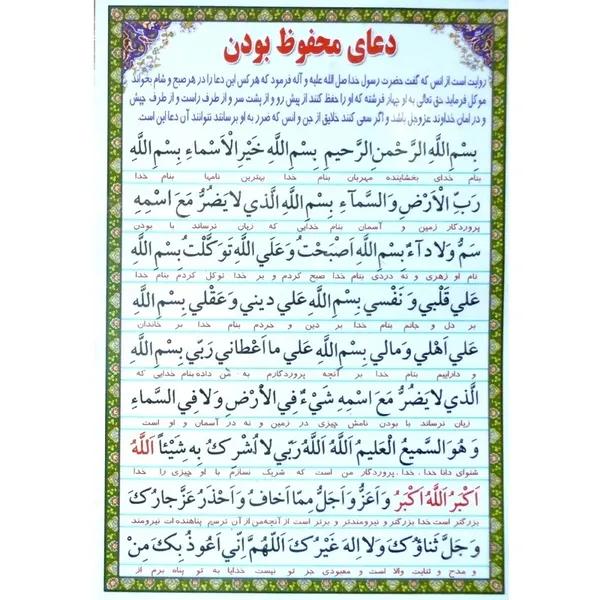 دعای محفوظ بودن
روایت است از انس که گفت حضرت رسول خدا صل الله علیه و آله فرمود که هر کس این دعا را در هر صبح و شام بخواند
موکل فرماید حق تعالی به او چهار فرشته که او را حفظ کنند از پیش رو و از پشت سر و از طرف راست و از طرف چپش
و در امان خداوند عزوجل باشد و اگر سعی کنند خلایق از جن و انس که ضرر به او برسانند نتوانند آن دعا این است.
بِسْمِ اللَّهِ الرَّحْمنِ الرَّحيمِ بِسْمِ اللَّهِ خَيْرِ الْاَسْماءِ بِسْمِ اللَّهِ
بنام خدای بخشاینده مهربان بنام خدا بهترین نامها بنام خدا
رَبِّ الْاَرْضِ وَ السَّمآءِ بِسْمِ اللَّهِ الَّذي لا يَضُرُّ مَعَ اسْمِهِ
پروردگار زمین و آسمان بنام خدایی که زیان نرساند با بودن
سَمٌّ وَ لا دآءٌ بِسْمِ اللَّهِ اَصْبَحْتُ وَ عَلَي اللَّهِ تَوَكَّلْتُ بِسْمِ اللَّهِ
نام او زهری و نه دردی بنام خدا صبح کردم و بر خدا توکل کردم بنام خدا
عَلي قَلْبي وَ نَفْسي بِسْمِ اللَّهِ عَلي ديني وَ عَقْلي بِسْمِ اللَّهِ
بر دل و جانم بنام خدا بر دین و خردم بنام خدا بر خاندان
عَلي اَهْلي وَ مالي بِسْمِ اللَّهِ عَلي ما اَعْطاني رَبّي بِسْمِ اللَّهِ
و داراییم بنام خدا بر آنچه پروردگارم به من داده بنام خدایی که
الَّذي لا يَضُرُّ مَعَ اسْمِهِ شَيْءٌ فِي الْاَرْضِ وَ لا فِي السَّماءِ
زیان نرساند با بودن نامش چیزی در زمین و نه در آسمان و او است
وَ هُوَ السَّميعُ الْعَليمُ اَللَّهُ اَللَّهُ رَبّي لا اُشْرِكُ بِهِ شَيْئاً اَللَّهُ
شنوای دانا خدا، خدا، پروردگار من است که شریک نسازم با او چیزی را خدا
اَكْبَرُ اَللَّهُ اَكْبَرُ وَ اَعَزُّ وَ اَجَلُّ مِمّا اَخافُ وَ اَحْذَرُ عَزَّ جارُكَ
بزرگتر است خدا بزرگتر و نیرومندتر و برتر است از آنچه من از آن ترسم پناهنده ات نیرومند
وَ جَلَّ ثَناؤُكَ وَ لا اِلهَ غَيْرُكَ اَللّهُمَّ اِنّي اَعُوذُ بِكَ مِنْ
و مدح و ثنایت والا است و معبودی جز تو نیست خدایا به تو پناه برم از